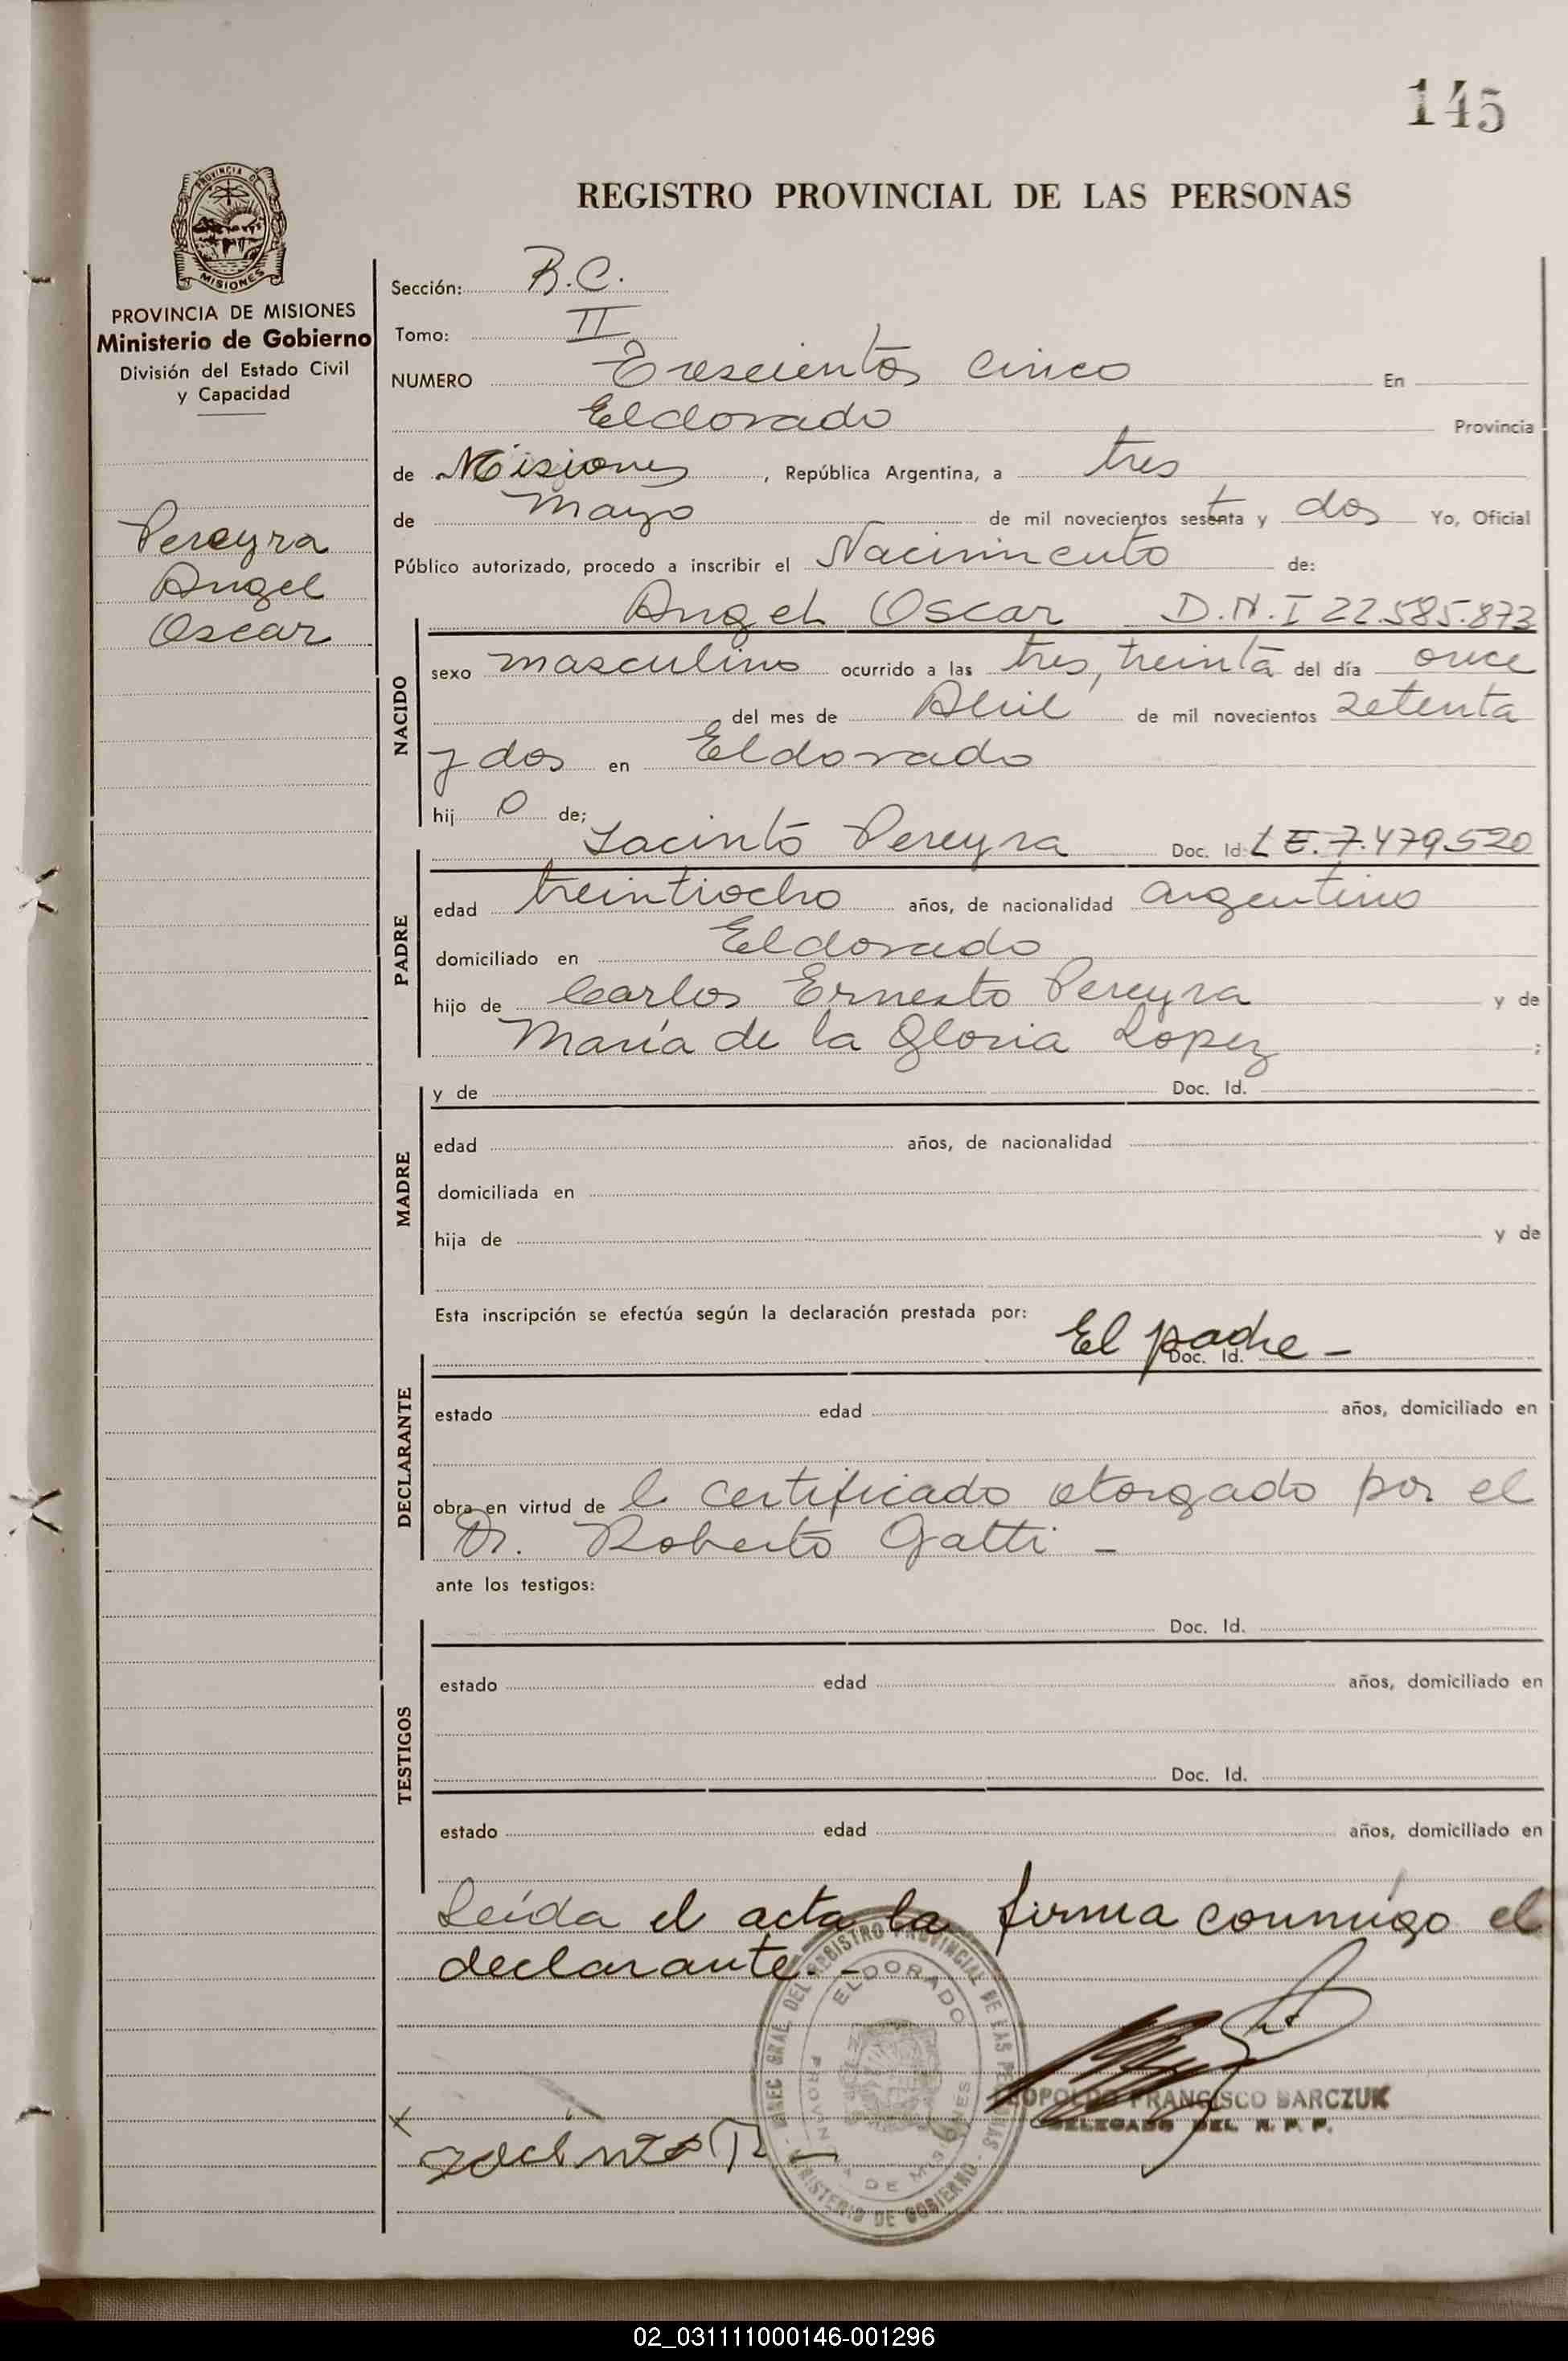 145
PROVINCIA DE
MISIONES
PROVINCIA DE MISIONES
Ministerio de Gobierno
División del Estado Civil
y Capacidad
Pereyra
Angel
Oscar
REGISTRO PROVINCIAL DE LAS PERSONAS
Sección: R.C.
Tomo: II
NUMERO Trescientos cinco En
Eldorado Provincia
de Misiones, República Argentina, a tres
de Mayo de mil novecientos sesenta y dos Yo, Oficial
Público autorizado, procedo a inscribir el Nacimiento de:
NACIDO
Angel Oscar D.N.I 22.585.873
sexo masculino ocurrido a las tres, treinta del día once
del mes de Abril de mil novecientos setenta
y dos en Eldorado
hij o de;
PADRE
Jacinto Pereyra Doc. Id: L E. 7.479.520
edad treintiocho años, de nacionalidad argentino
domiciliado en Eldorado
hijo de Carlos Ernesto Pereyra y de
María de la Gloria Lopez ;
MADRE
y de Doc. Id.
edad años, de nacionalidad
domiciliada en
hija de y de
Esta inscripción se efectúa según la declaración prestada por:
DECLARANTE
El padre - Doc. Id.
estado edad años, domiciliado en
obra en virtud de l certificado otorgado por el
Dr. Roberto Gatti -
ante los testigos:
TESTIGOS
Doc. Id.
estado edad años, domiciliado en
Doc. Id.
estado edad años, domiciliado en
Leída el acta la firma conmigo el
declarante. -
DEL REGISTRO PROVINCIAL DE LAS
ELDORADO
PROVINCIA DE MISIONES
MINISTERIO DE GOBIERNO
LEOPOLDO FRANCISCO BARCZUK
DELEGADO DEL R. P. P.
02_031111000146-001296